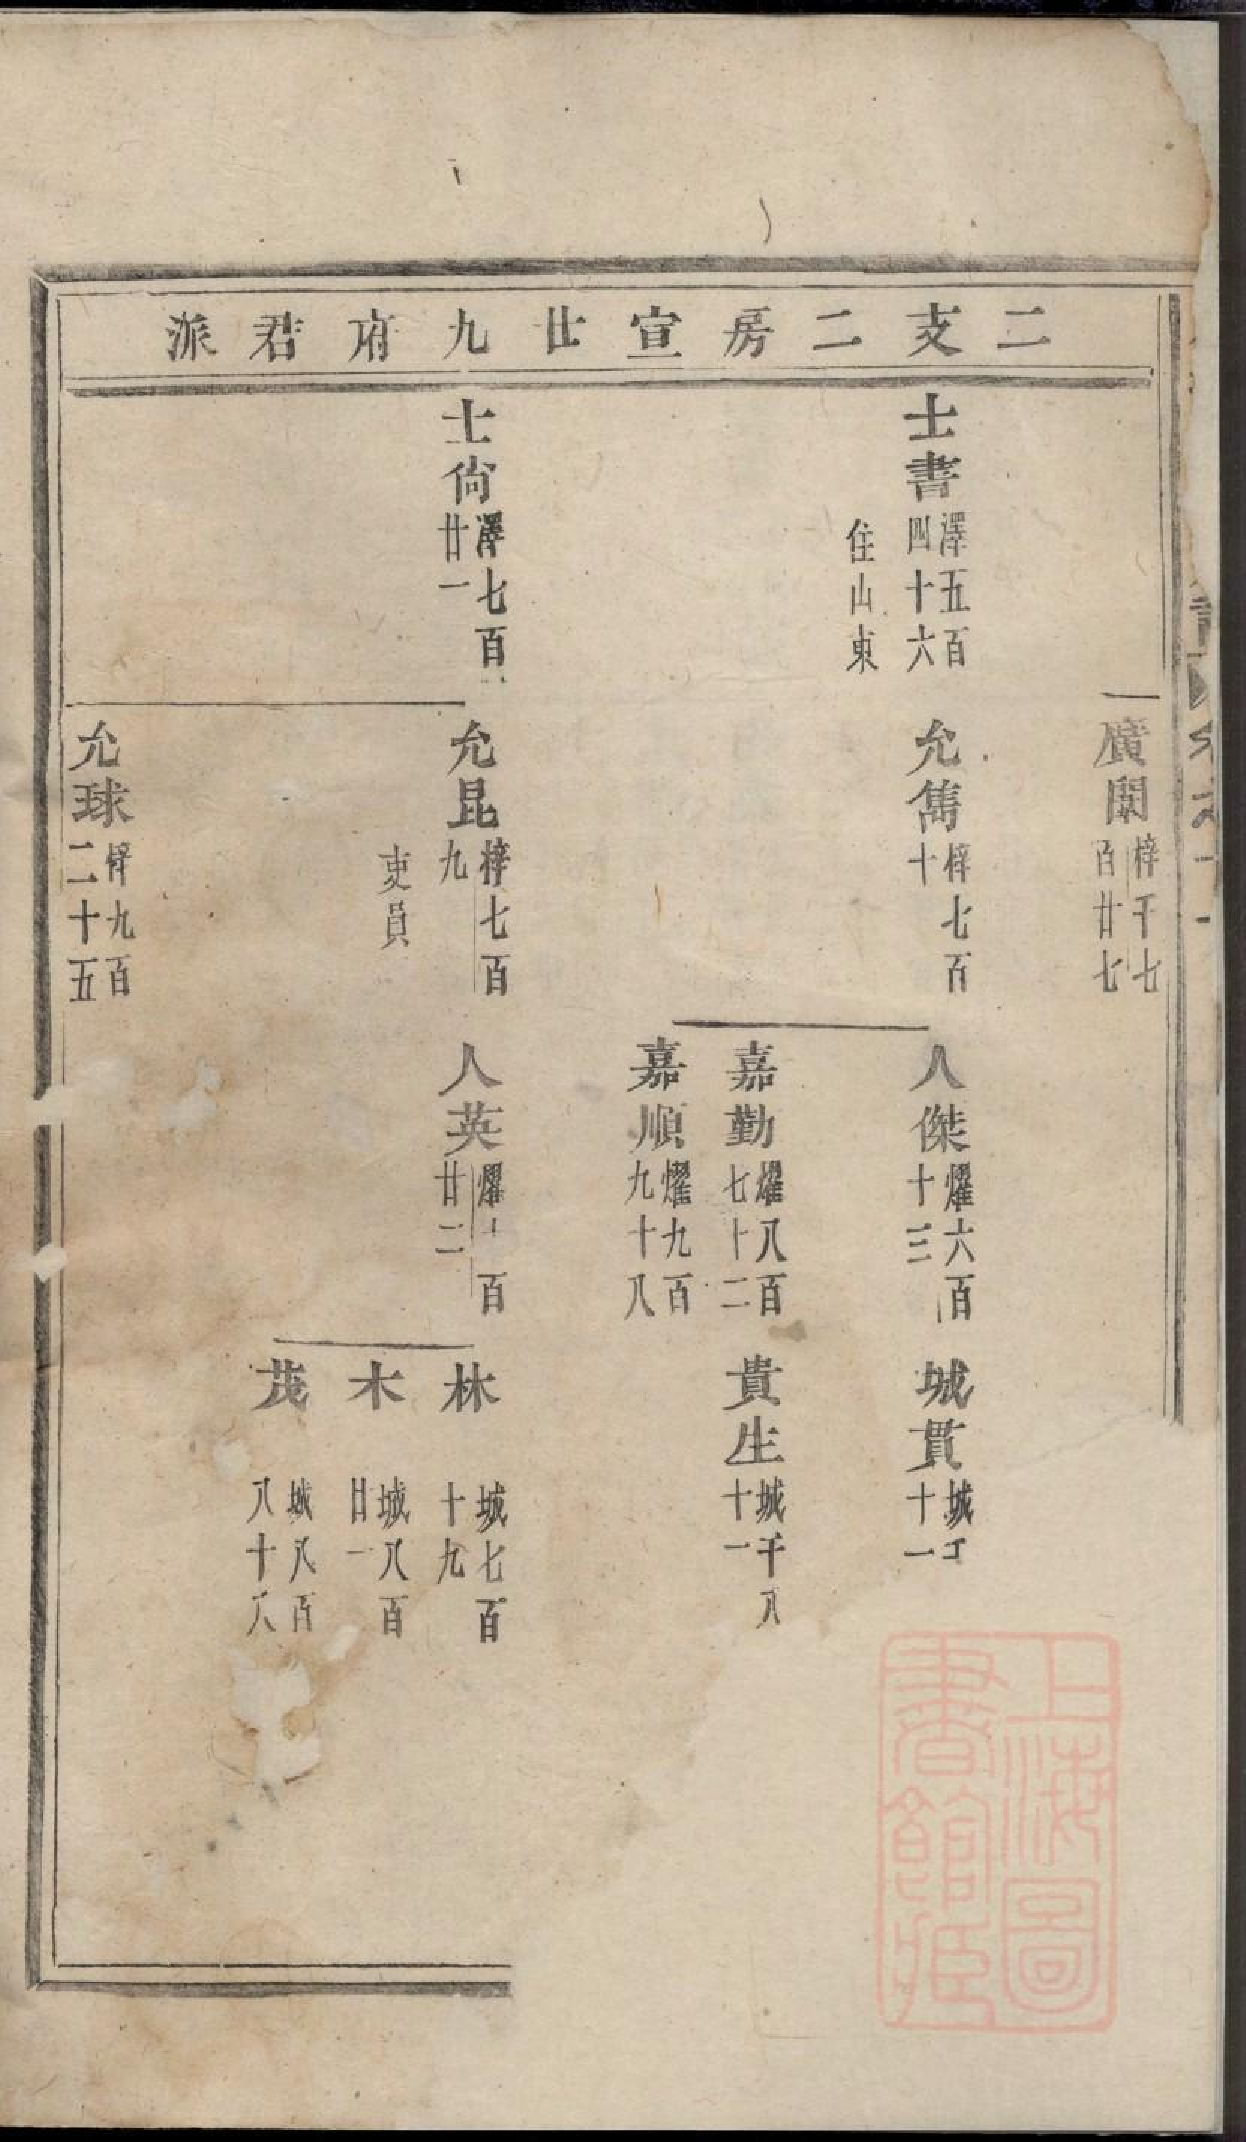 二支二房宣廿九府君派
廣闡 梓千七
百廿七
士書 澤五百
四十六
住山東
允雋 梓七百
十
人傑 燿六百
十三
城貫 城千
十一
嘉勤 燿八百
七十二
貴生 城千八
十一
嘉順 燿九百
九十八
士尙 澤七百
廿一
允昆 梓七百
九
吏員
人英 燿 百
廿二
林 城七百
十九
木 城八百
廿一
茂 城八百
八十八
允球 梓九百
二十五
上海圖
書館藏